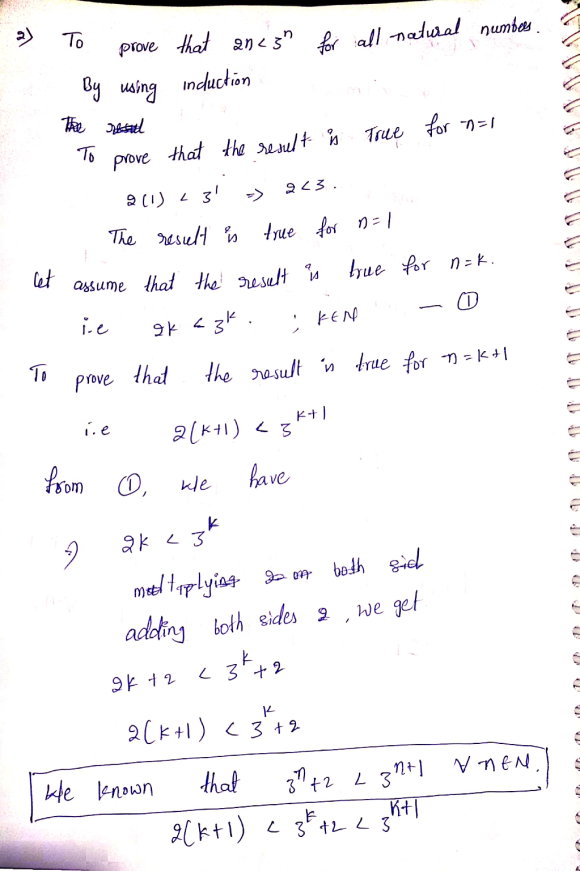 2) To prove that 2n < 3ⁿ for all natural number.
By using induction
The resul
To prove that the result is True for n=1
2(1) < 3¹ => 2<3.
The result is true for n=1
let assume that the result is true for n=k.
i.e 2k < 3ᵏ. ; k∈N — ①
To prove that the result is true for n=k+1
i.e 2(k+1) < 3ᵏ⁺¹
from ①, We have
⇒ 2k < 3ᵏ
multiplying 2 on both sid
adding both sides 2, we get
2k+2 < 3ᵏ+2
2(k+1) < 3ᵏ+2
We known that 3ⁿ+2 < 3ⁿ⁺¹ ∀ n∈N.
2(k+1) < 3ᵏ+2 < 3ᵏ⁺¹